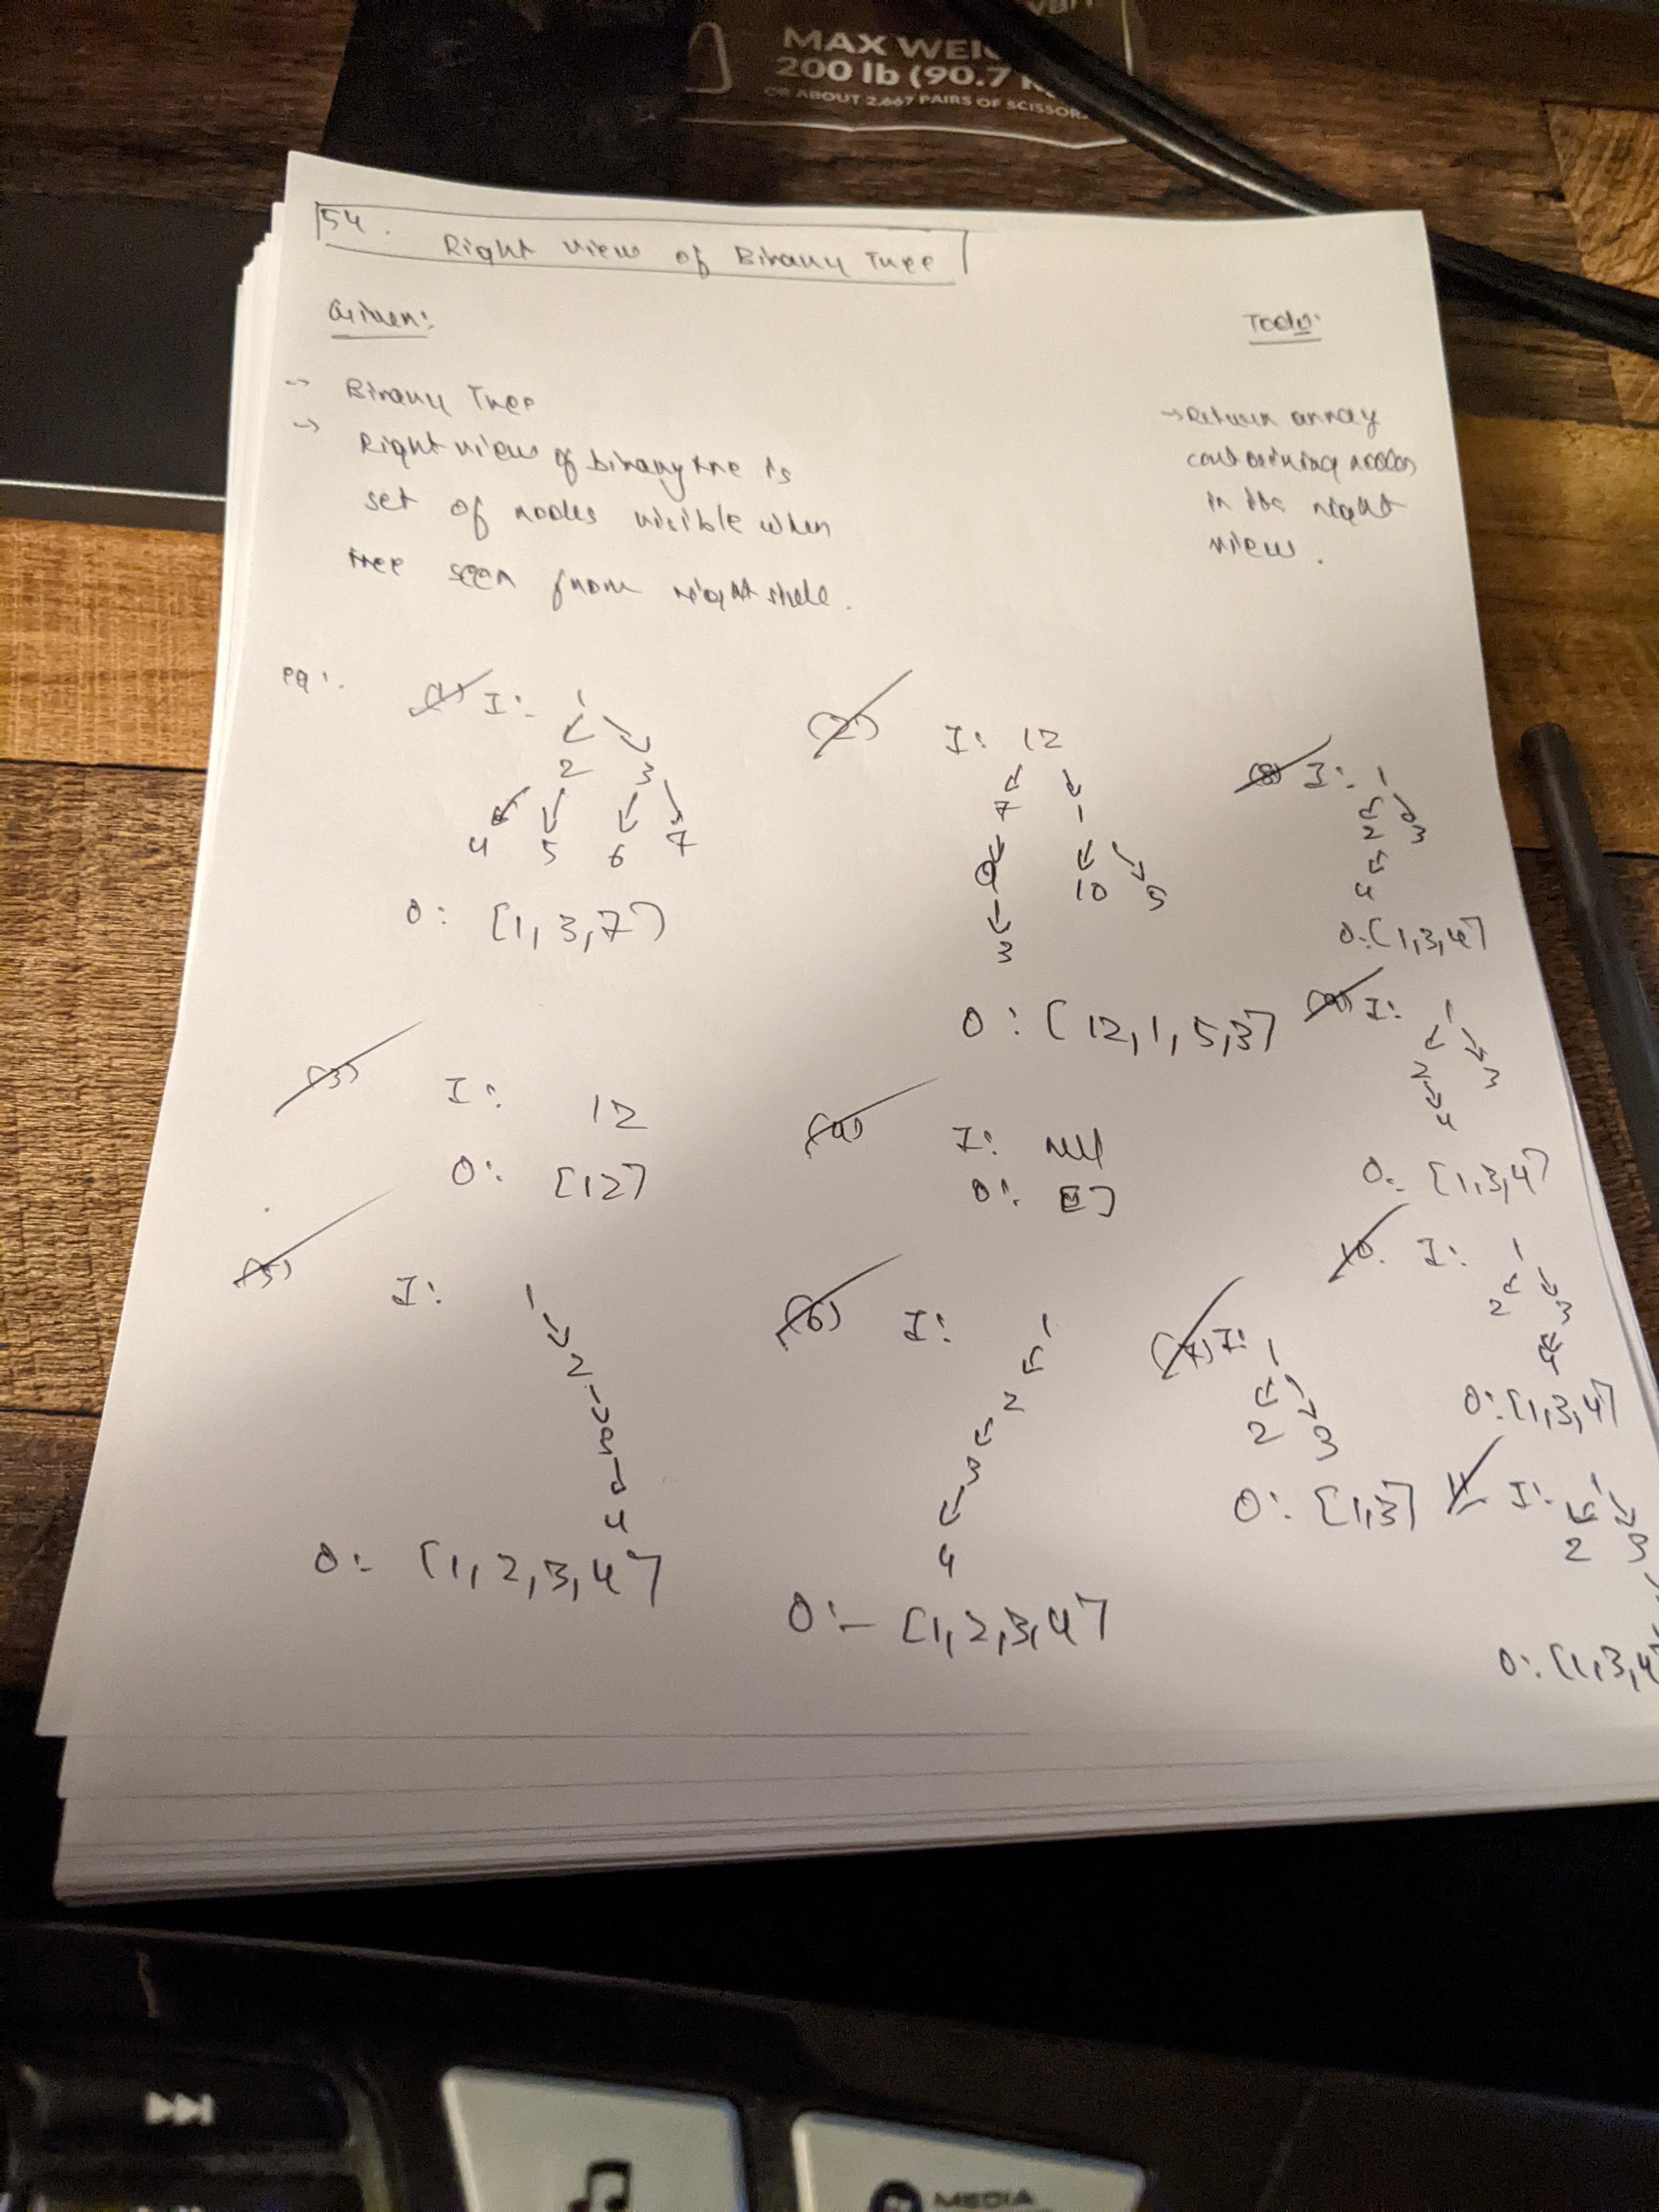 MAX WEI
200 lb (90.7
OR ABOUT 2,667 PAIRS OF SCISSOR
54.
Right View of Binary Tree
Given:
Todo:
-> Binary Tree
-> Right view of binary tree is
set of nodes visible when
tree seen from right side.
-> Return array
containing nodes
in its right
view.
eg:
(1) I:- 1
2 3
4 5 6 7
O: [1, 3, 7]
(2) I: 12
7 1
10 5
3
O: [12, 1, 5, 3]
(8) I: 1
2 3
4
O: [1,3,4]
(9) I: 1
2 3
4
O: [1,3,4]
(3) I: 12
O: [12]
(4) I: Null
O: []
10. I: 1
2 3
4
O: [1,3,4]
(5) I: 1
2
3
4
O: [1, 2, 3, 4]
(6) I: 1
2
3
4
O:- [1, 2, 3, 4]
(7) I: 1
2 3
O: [1,3]
11. I: 1
2 3
O: [1,3,4
MEDIA